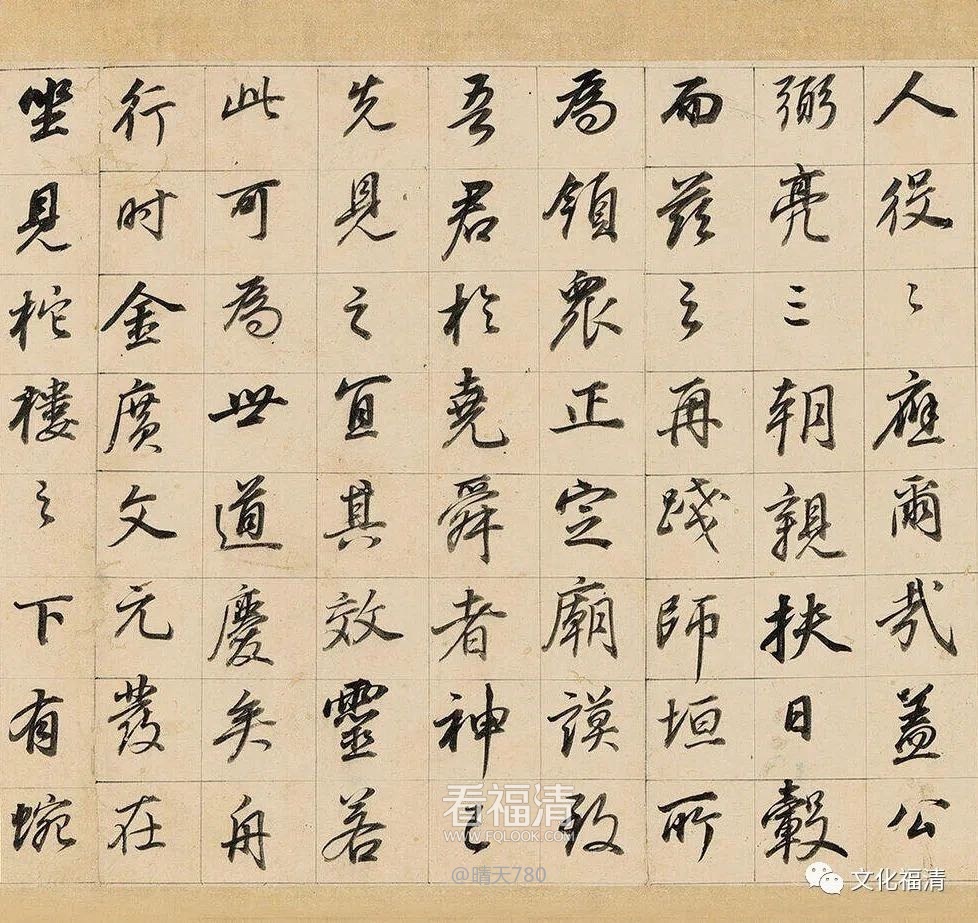 人役〻應爾哉蓋公
弼亮三朝親扶日轂
而茲之再踐師垣所
為領衆正定廟謨致
吾君於堯舜者神已
先見之宜其效靈若
此可為世道慶矣舟
行时金廣文元發在
坐見柁樓之下有蜿
看福清
WWW.FQLOOK.COM
@晴天780
文化福清